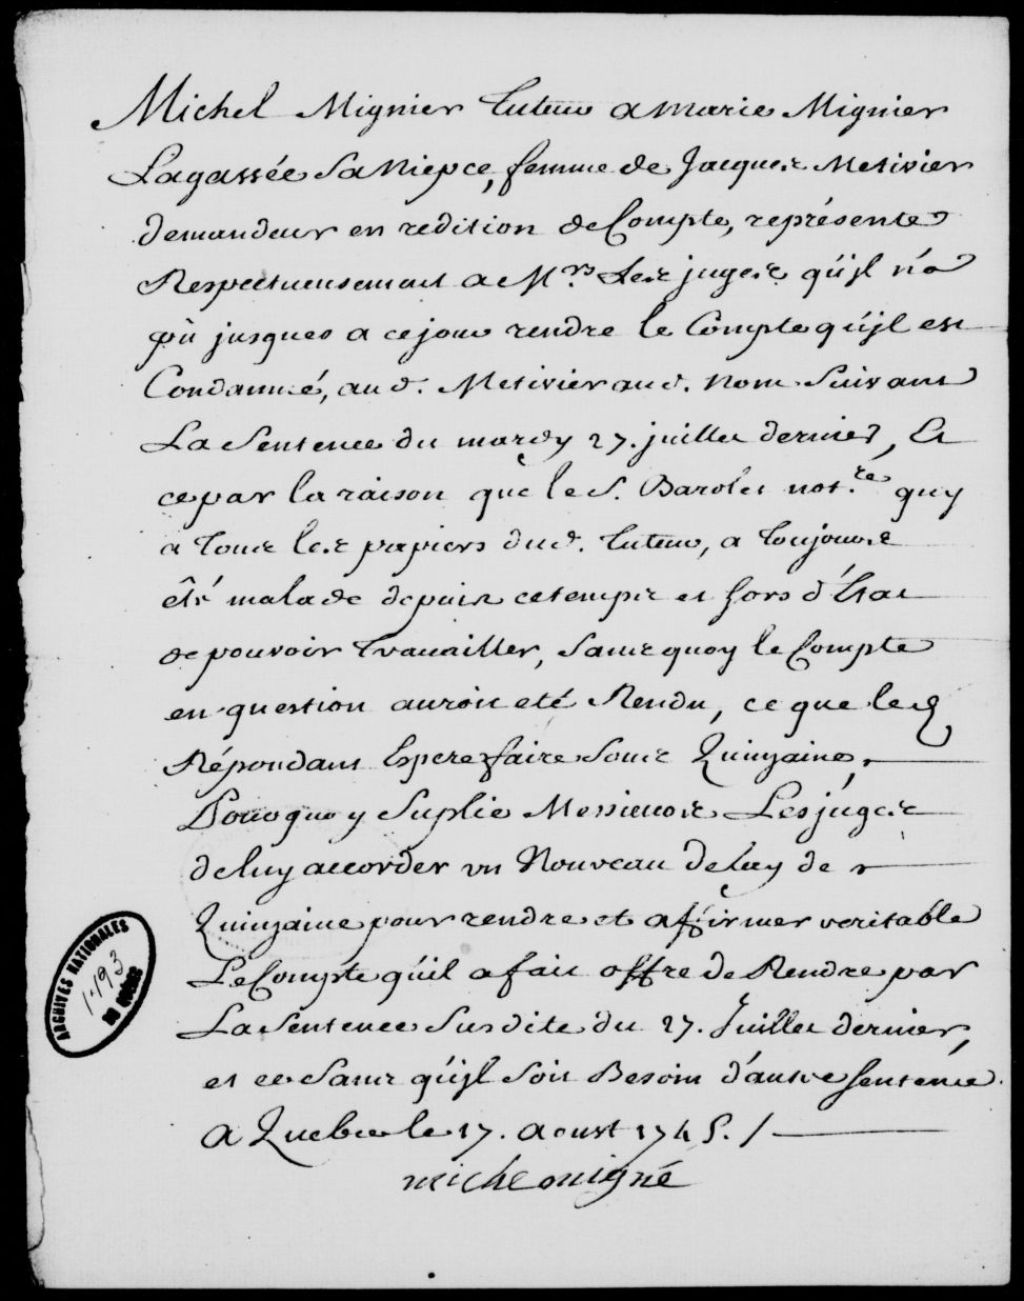 Michel Mignier tuteur a Marie Mignier
Lagassée Sa Niepce, femme de Jacques Metivier
demandeur en redition de Compte, représente
Respectueusement a Mrs. Les juges qu'jl n'a
pù jusques a ce jour rendre le Compte qu'jl est
Condamné, aud. Metivier aud. nom Suivant
La Sentence du mardy 27. juillet dernier, Et
ce par la raison que le S. Barolet not.re quy
a tous les papiers dud. tuteur, a toujours
été malade depuis ce temps et hors d'État
de pouvoir travailler, Sans quoy le Compte
en question auroit eté Rendu, ce que led
Répondant Espere faire Sous Quinzaine,
Pourquoy Suplie Messieurs Les juges
de luy accorder un Nouveau Delay de
Quinzaine pour rendre et affirmer veritable
Le Compte qu'il a fait offre de Rendre par
La Sentence Susdite du 27. Juillet dernier,
et ce Sans qu'jl Soit Besoin d'autre Sentence.
a Quebec le 17. aoust 1745. /
michel migné
ARCHIVES NATIONALES
1193
DU QUÉBEC